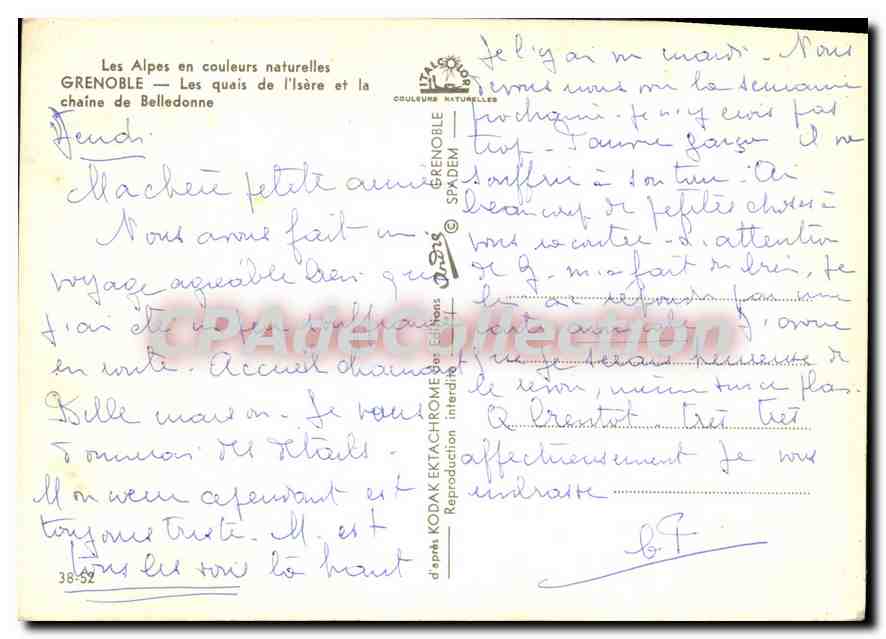 Les Alpes en couleurs naturelles
GRENOBLE — Les quais de l'Isère et la
chaîne de Belledonne
ITALCOLOR
COULEURS NATURELLES
Jeudi
Ma chère petite amie
Nous avons fait un
voyage agréable bien que
j'ai été un peu souffrante
en route. Accueil charmant
Belle maison. Je vous
donnerai des détails.
Mon cœur cependant est
toujours triste. M. est
tous les soirs là haut
38-52
d'après KODAK EKTACHROME des Editions André © GRENOBLE
Reproduction interdite SPADEM
Je l'y ai vu mardi. Nous
devons nous voir la semaine
prochaine. Je n'y crois pas
trop. Pauvre garçon il va
souffrir à son tour. Ai
beaucoup de petites choses à
vous raconter. L'attention
de G. m'a fait du bien, je
lui ai répondu par une
carte aussi. J'avoue
que je serais heureuse de
le revoir, même sur ce plan.
A bientôt. très très
affectueusement je vous
embrasse
CPAdeCollection